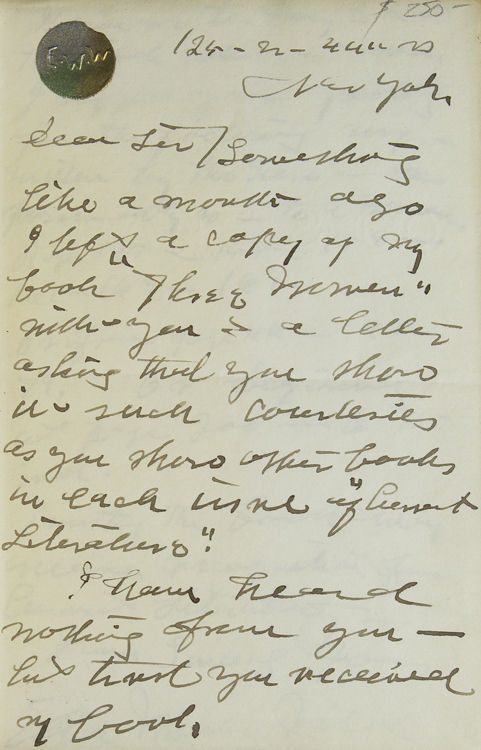 $ 250-
E.W.W
New York,
Dear Sir / Something
like a month ago
I left a copy of my
book "Three Women"
with you & a letter
asking that you show
it such courtesies
as you show other books
in each issue of "Current
Literature".
I have heard
nothing from you —
but trust you received
my book.